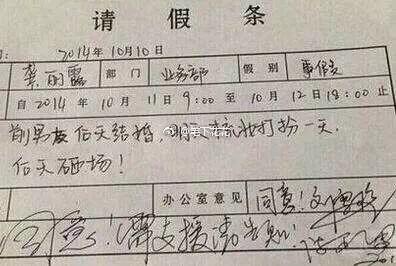 请 假 条
2014年10月10日
龚丽露 部 门 业务部 假 别 事假
自 2014 年 10 月 11 日 9:00 至 10 月 12 日 18:00 止
前男友后天结婚，明天梳妆打扮一天，
后天砸场！
办公室意见 同意！
同意！需支援请告知！